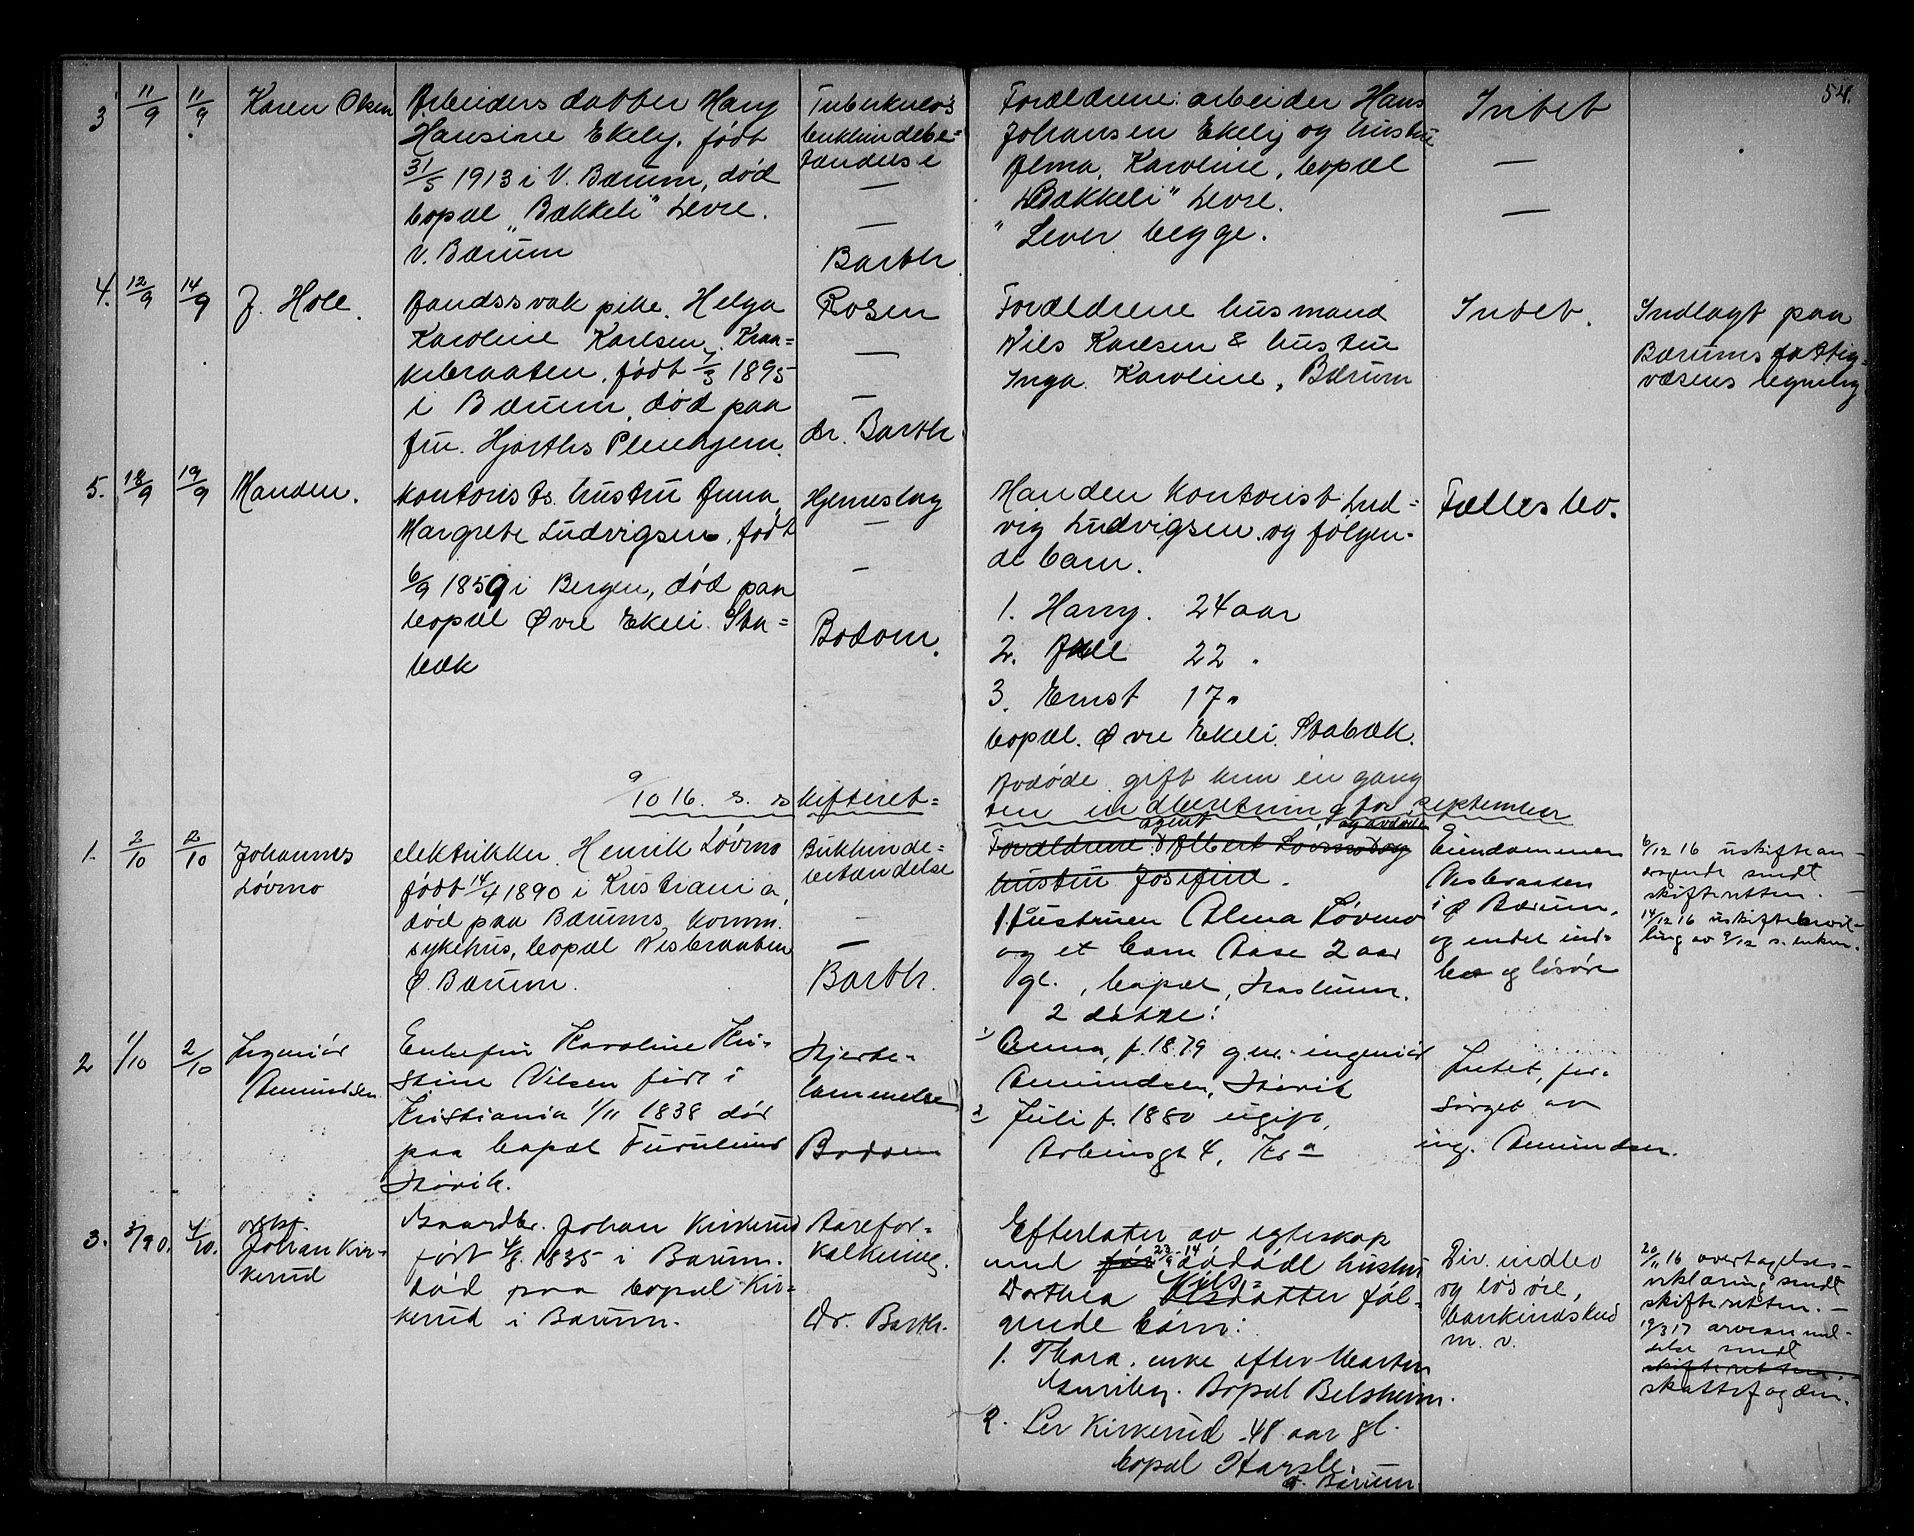 54.
3 11/9 11/9 Karen Olsen
Arbeiders datter Mary
Hansine Ekely, født
31/5 1913 i V. Bærum, død
bopæl „Bækkeli" Levre.
V. Bærum
Tuberkuløs
bukhindebe=
tændelse
—
—
Barth
Forældrene: arbeider Hans
Johansen Ekely og hustru
Alma Karoline, bopæl
„Bækkeli" Levre.
Lever begge.
Intet
—
—
4. 12/9 14/9 J. Hole.
Aandssvak pike Helga
Karoline Karlsen, Kraa=
kebraaten, født 7/3 1895
i Bærum, død paa
fru Hjorths Pleiehjem.
Rosen
—
—
dr. Barth
Forældrene husmand
Nils Karlsen & hustru
Inga Karoline, Bærum
Intet.
Indlagt paa
Bærums fattig=
væsens regning
5. 18/9 19/9 Manden.
Kontorists hustru Anna
Margrete Ludvigsen, født
6/9 1859 i Bergen, død paa
bopæl Øvre Ekeli Sta=
bæk
Hjerneslag
—
—
Bodom.
Manden kontorist Lud=
vig Ludvigsen og følgen=
de barn.
1. Harry. 24 aar
2. 22 "
3. Ernst 17 "
bopæl. Øvre Ekeli. Stabæk.
Avdøde gift kun en gang
9/10 16. s. s kifteret=
ten indberetning for september
1. 2/10 2/10 Johannes
Løvmo
elektrikker Henrik Løvmo
født 14/4 1890 i Kristiania,
død paa Bærums komm.
sykehus, bopæl Nesbraaten
Ø. Bærum.
Bukhinde=
betændelse
—
—
Barth.
agent og avdøde
Forældrene Albert Løvmo og
hustru Josefine.
1. Hustruen Alma Løvmo
og et barn Aase 2 aar
gl., bopæl, Haslum.
Eiendommen
Nesbraaten
i Ø Bærum,
og endel ind=
bo og løsøre
6/12 16 uskiftean-
dragende sendt
skifteretten. —
14/12 16 uskiftebevil-
ling av 9/12 s. enken.
2 1/10 2/10 Ingeniør
Amundsen
Enkefru Karoline Kri-
stine Nilsen født i
Kristiania 1/11 1838 død
paa bopæl Furulund
Høvik.
Hjerte-
lammelse
Bodom
2 døtre:
1 Anna, f. 1879 g. m. ingeniør
Amundsen, Høvik
2 Juli f. 1880 ugift,
Arbinsgt 4, Kra
Intet, for-
sørget av
ing. Amundsen.
3. 3/10. 4/10. Johan Kir-
kerud
Gaardbr. Johan Kirkerud
født 4/8 1835 i Bærum.
død paa bopæl Kir-
kerud i Bærum.
Aarefor-
kalkning.
Dr. Barth.
Efterlater av egteskap
med før 23/9 - 14 døde hustru
Dorthea Nils=
datter føl-
gende barn:
1. Thora, enke efter Martin
Bopæl Belsheim.
2. Kirkerud 48 aar gl.
bopæl
V. Bærum
Div. indbo
og løsøre,
bankindskud
m. v.
20/11 16 overtagelses-
erklæring sendt
skifteretten. —
19/3 17 arveanmel-
delse sendt
skifteretten.
skattefogden.